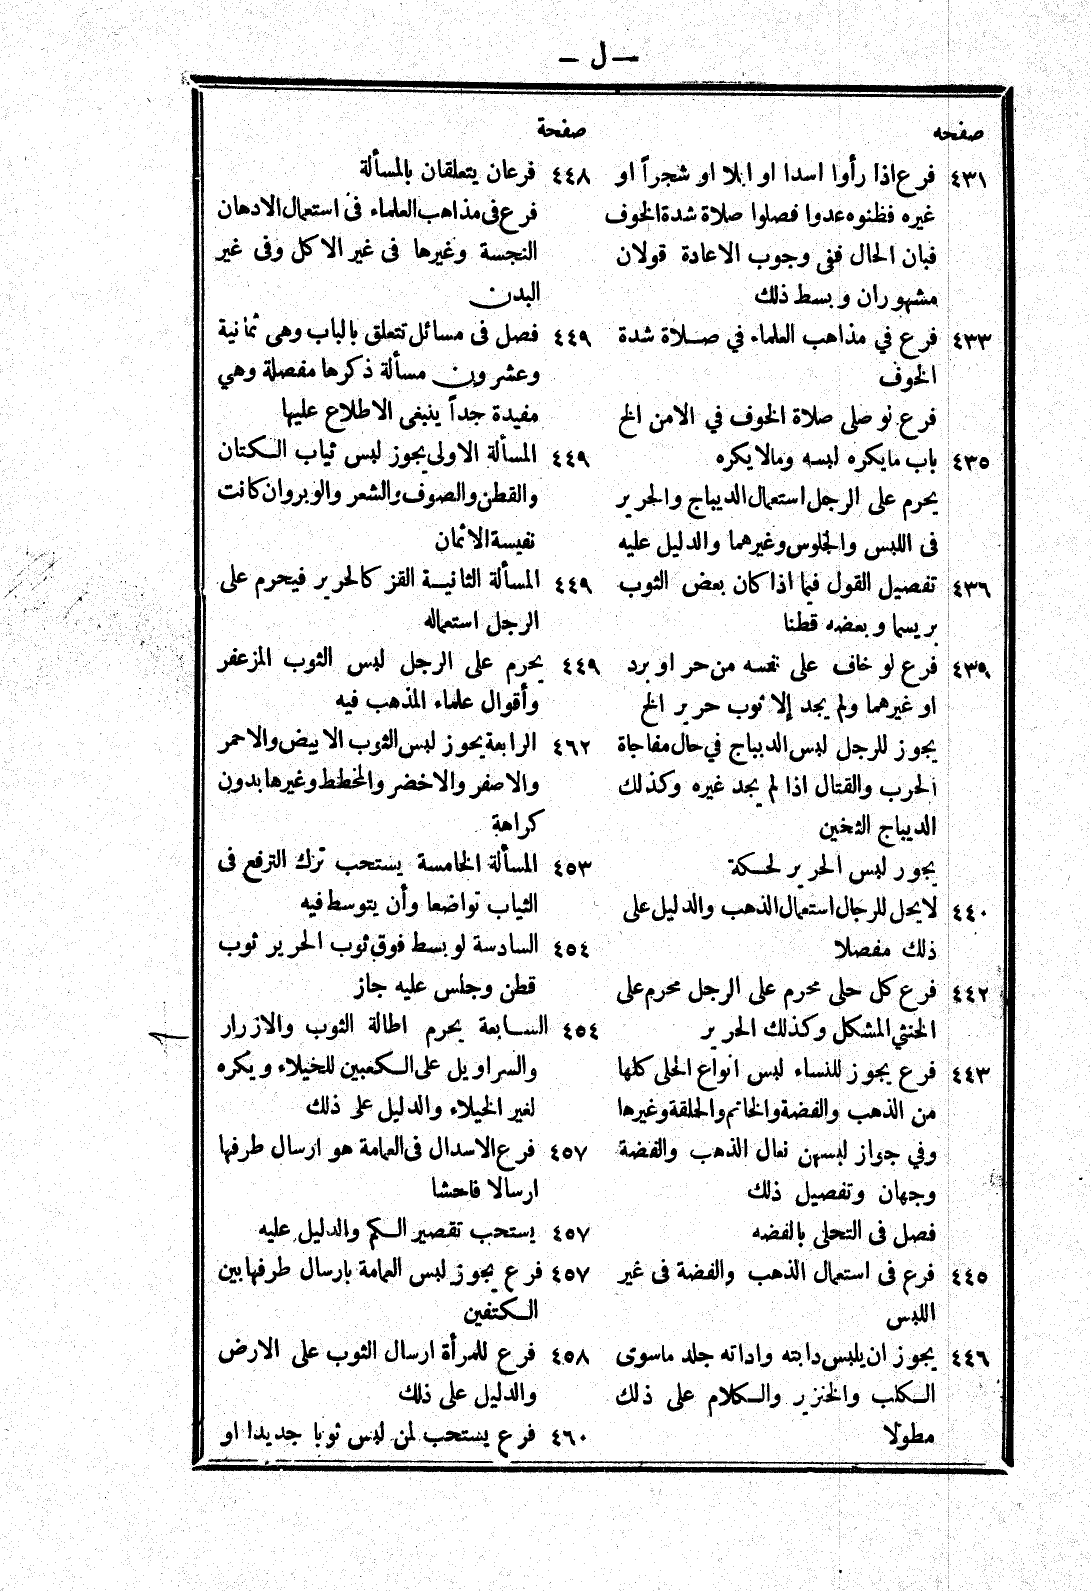 — ل —
صفحه
٤٣١ فرع اذا رأوا اسدا او ابلا او شجراً او
غيره فظنوه عدوا فصلوا صلاة شدة الخوف
فبان الحال ففي وجوب الاعادة قولان
مشهوران وبسط ذلك
٤٣٣ فرع في مذاهب العلماء في صلاة شدة
الخوف
فرع لو صلى صلاة الخوف في الامن الخ
٤٣٥ باب ما يكره لبسه وما لا يكره
يحرم على الرجل استعمال الديباج والحرير
فى اللبس والجلوس وغيرهما والدليل عليه
٤٣٦ تفصيل القول فيما اذا كان بعض الثوب
بريسما وبعضه قطنا
٤٣٩ فرع لو خاف على نفسه من حر او برد
او غيرهما ولم يجد إلا ثوب حرير الخ
يجوز للرجل لبس الديباج في حال مفاجاة
الحرب والقتال اذا لم يجد غيره وكذلك
الديباج الثخين
يجور لبس الحرير لحكة
٤٤٠ لايحل للرجال استعمال الذهب والدليل على
ذلك مفصلا
٤٤٢ فرع كل حلى محرم على الرجل محرم على
الخنثي المشكل وكذلك الحرير
٤٤٣ فرع يجوز للنساء لبس انواع الحلى كلها
من الذهب والفضة والخاتم والحلقة وغيرها
وفي جواز لبسهن نعال الذهب والفضة
وجهان وتفصيل ذلك
فصل فى التحلى بالفضه
٤٤٥ فرع فى استعمال الذهب والفضة فى غير
اللبس
٤٤٦ يجوز ان يلبس دابته واداته جلد ماسوى
الكلب والخنزير والكلام على ذلك
مطولا
صفحة
٤٤٨ فرعان يتعلقان بالمسألة
فرع فى مذاهب العلماء فى استعمال الادهان
النجسة وغيرها فى غير الاكل وفى غير
البدن
٤٤٩ فصل فى مسائل تتعلق بالباب وهى ثمانية
وعشرون مسألة ذكرها مفصلة وهي
مفيدة جداً ينبغى الاطلاع عليها
٤٤٩ المسألة الاولى يجوز لبس ثياب الكتان
والقطن والصوف والشعر والوبر وان كانت
نفيسة الاثمان
٤٤٩ المسألة الثانية القز كالحرير فيحرم على
الرجل استعماله
٤٤٩ يحرم على الرجل لبس الثوب المزعفر
وأقوال علماء المذهب فيه
٤٦٢ الرابعة يجوز لبس الثوب الابيض والاحمر
والاصفر والاخضر والمخطط وغيرها بدون
كراهة
٤٥٣ المسألة الخامسة يستحب ترك الترفع فى
الثياب تواضعا وأن يتوسط فيه
٤٥٤ السادسة لو بسط فوق ثوب الحرير ثوب
قطن وجلس عليه جاز
٤٥٤ السابعة يحرم اطالة الثوب والازرار
والسراويل على الكعبين للخيلاء ويكره
لغير الخيلاء والدليل على ذلك
٤٥٧ فرع الاسدال فى العمامة هو ارسال طرفها
ارسالا فاحشا
٤٥٧ يستحب تقصير الكم والدليل عليه
٤٥٧ فرع يجوز لبس العمامة بارسال طرفها بين
الكتفين
٤٥٨ فرع للمرأة ارسال الثوب على الارض
والدليل على ذلك
٤٦٠ فرع يستحب لمن لبس ثوبا جديدا او